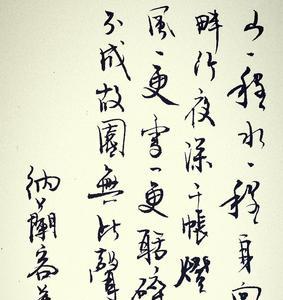 山一程水一程身向
畔行夜深千帳燈
風一更雪一更聒碎
不成故園無此聲
納蘭容若